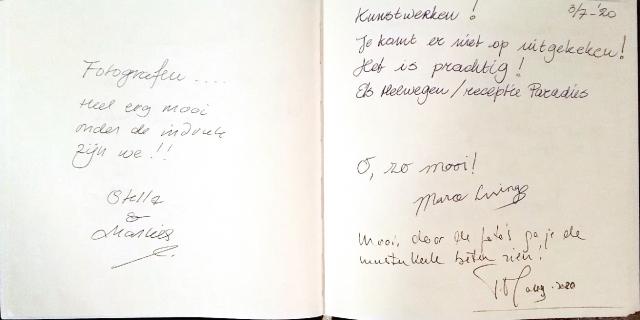 Fotografen ....
Heel erg mooi
onder de indruk
zijn we!!
Stella
&
Marlies
3/7-'20
Kunstwerken!
Je komt er niet op uitgekeken!
Het is prachtig!
Els Helwegen/receptie Paradies
O, zo mooi!
Mooi, door de foto's ga je de
beter zien!
2020